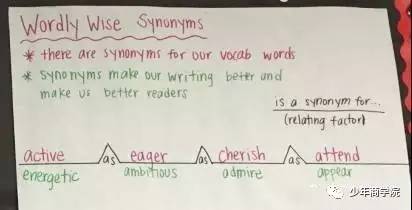 Wordly Wise Synonyms
* there are synonyms for our vocab words
* synonyms make our writing better and
make us better readers
is a synonym for...
(relating factor)
active as eager as cherish as attend
energetic ambitious admire appear
少年商学院